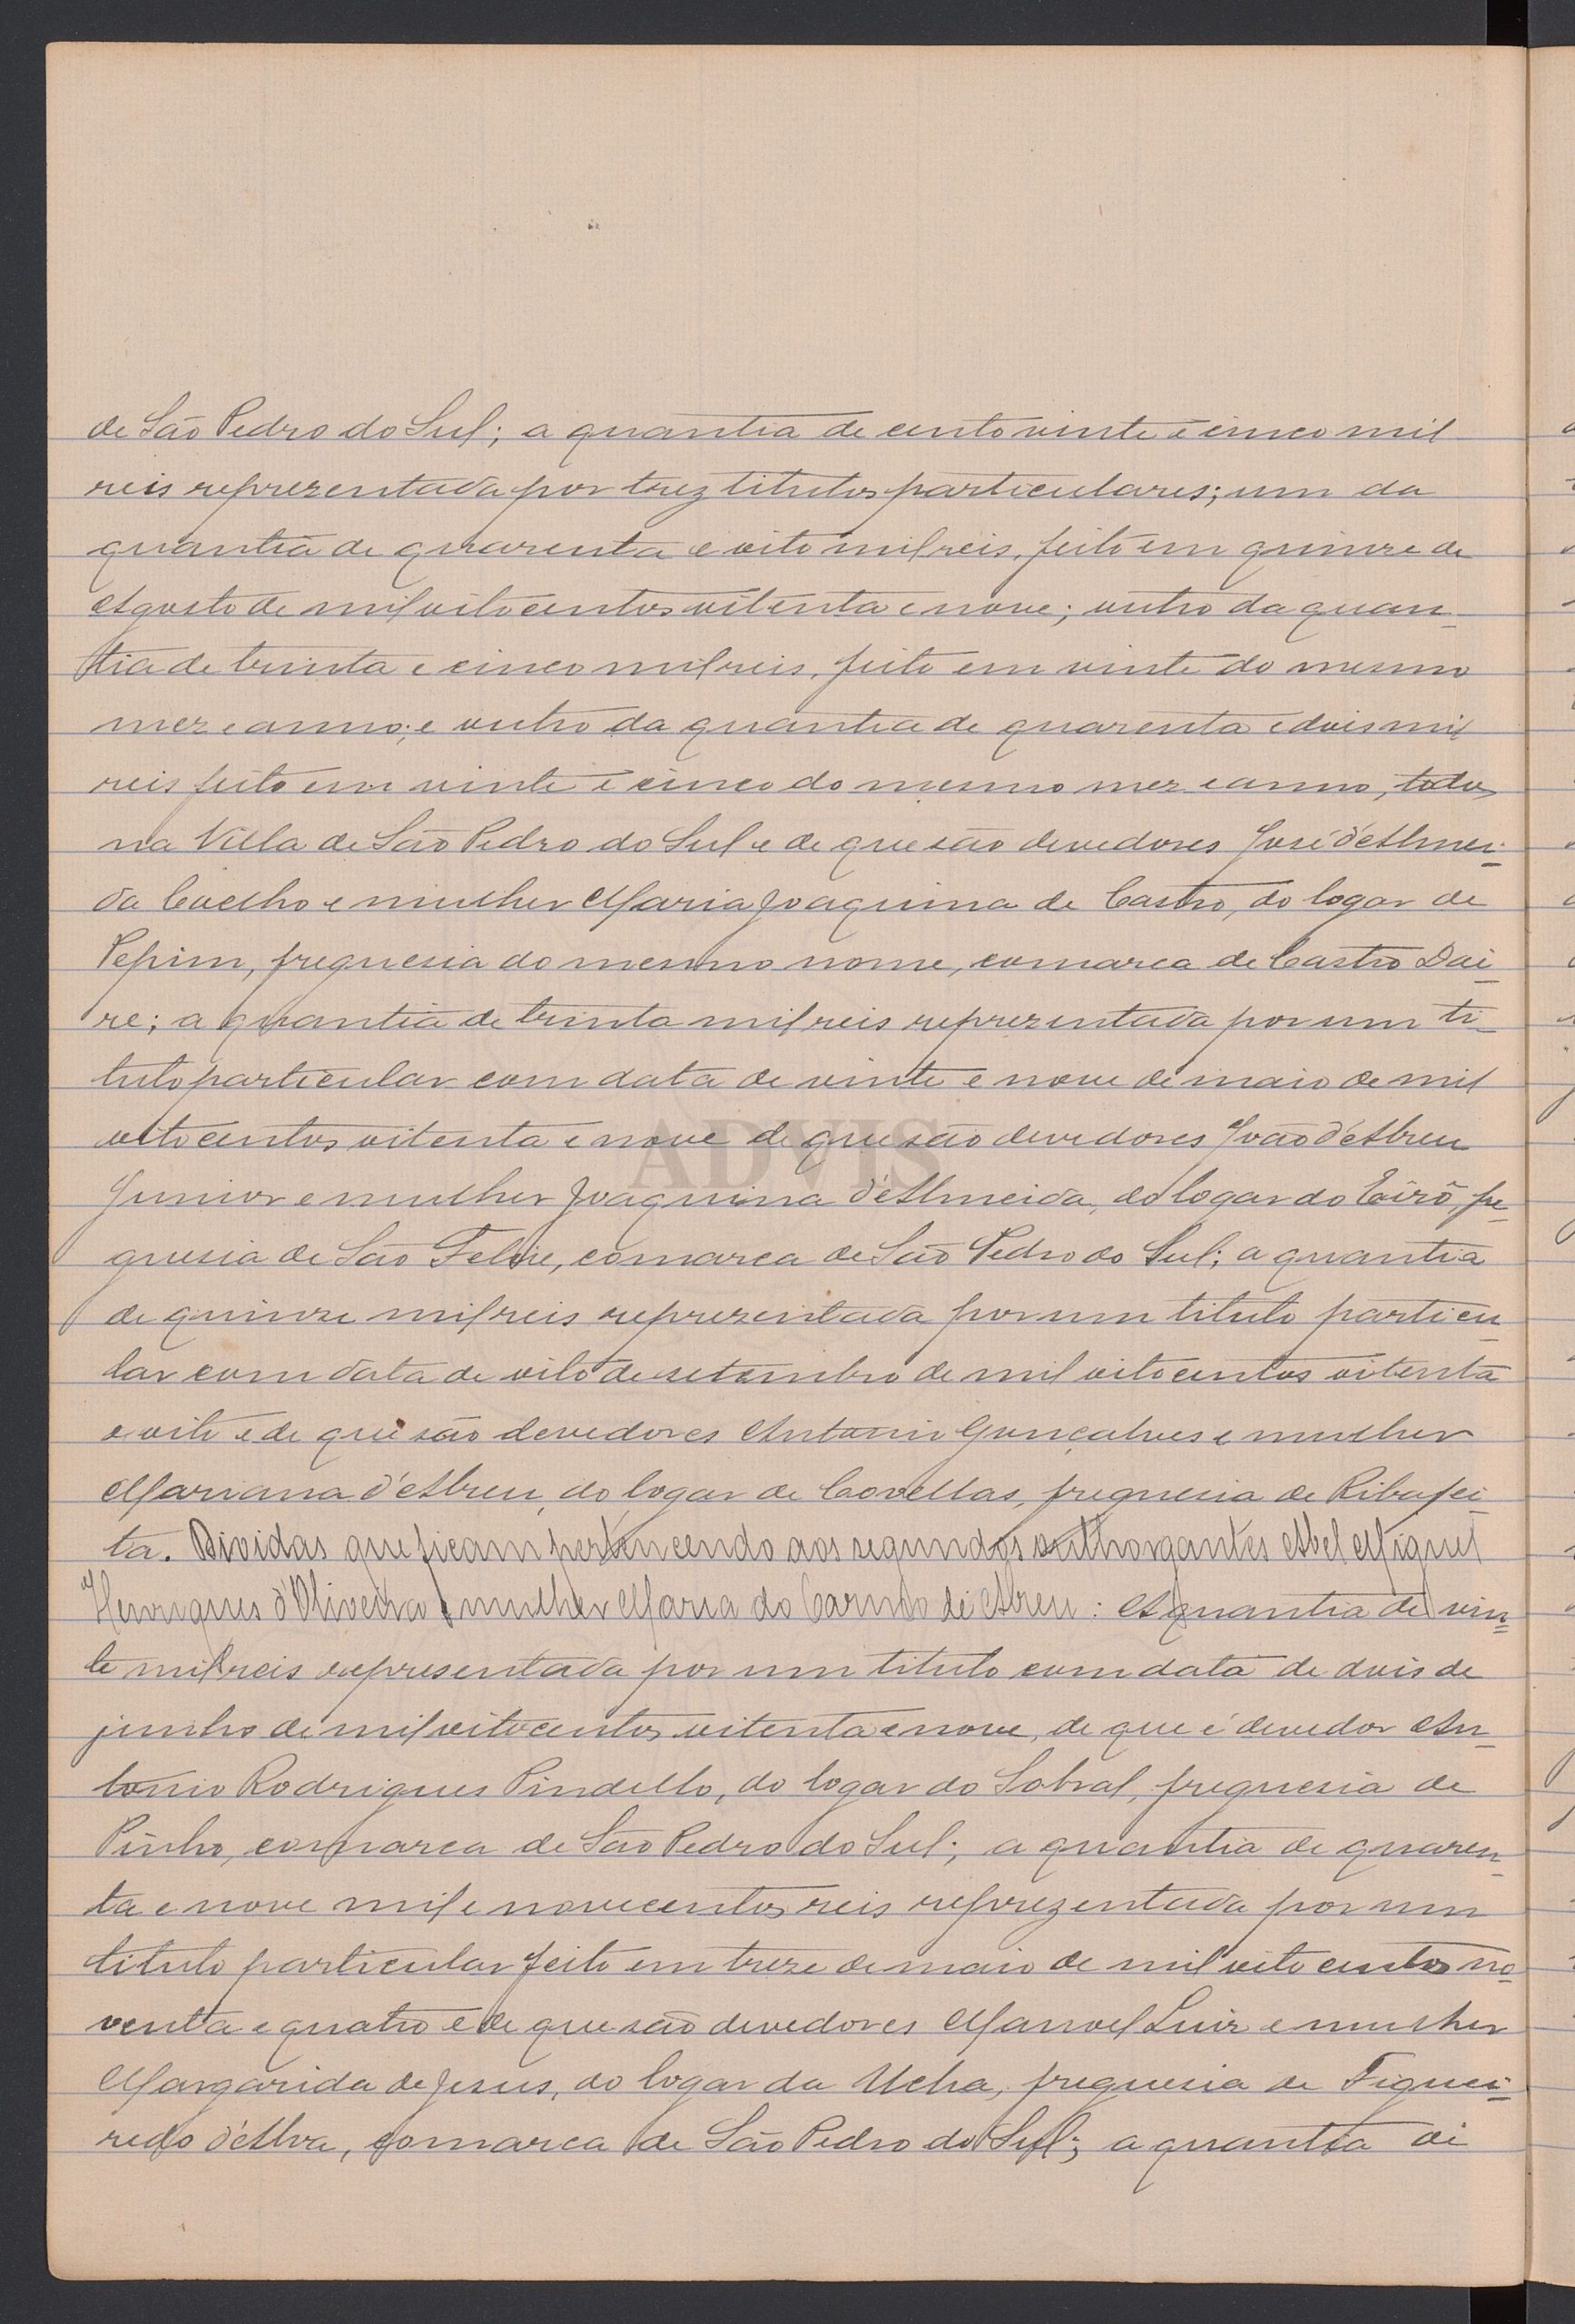 de São Pedro do Sul; a quantia de cento vinte e cinco mil
reis reprezentada por trez titulos particulares; um da
quantia de quarenta e oito mil reis, feito em quinze de
Agosto de mil oitocentos oitenta e nove; outro da quan-
tia de trinta e cinco mil reis, feito em vinte do mesmo
mez e anno; e outro da quantia de quarenta e dois mil
reis feito em vinte e cinco do mesmo mez e anno, todos
na Villa de São Pedro do Sul e de que são devedores José d'Almei-
da Coelho e mulher Maria Joaquina de Castro, do logar de
Pepim, freguesia do mesmo nome, comarca de Castro Dai-
re; a quantia de trinta mil reis reprezentada por um ti-
tulo particular com data de vinte e nove de maio de mil
oitocentos oitenta e nove de que são devedores João d'Abreu
Junior e mulher Joaquina d'Almeida, do logar do Eirô, fre-
guesia de São Felix, comarca de São Pedro do Sul; a quantia
de quinze mil reis reprezentada por um titulo particu-
lar com data de oito de setembro de mil oitocentos oitenta
e oito e de que são devedores Antonio Gonçalves e mulher
Marianna d'Abreu, do logar de Covellas, freguesia de Ribafei-
ta. Dividas que ficam pertencendo aos segundos outhorgantes Abel Miguel
Henriques d'Oliveira e mulher Maria do Carmo de Abreu: A quantia de vin-
te mil reis representada por um titulo com data de dois de
junho de mil oitocentos oitenta e nove, de que é devedor An-
tonio Rodrigues Pindello, do logar do Sobral, freguesia de
Pinho, comarca de São Pedro do Sul; a quantia de quaren-
ta e nove mil e novecentos reis reprezentada por um
titulo particular feito em treze de maio de mil oito centos no-
venta e quatro e de que são devedores Manoel Luiz e mulher
Margarida de Jesus, do logar da Ucha, freguesia de Figuei-
redo d'Alva, comarca de São Pedro do Sul; a quantia de
ADVIS